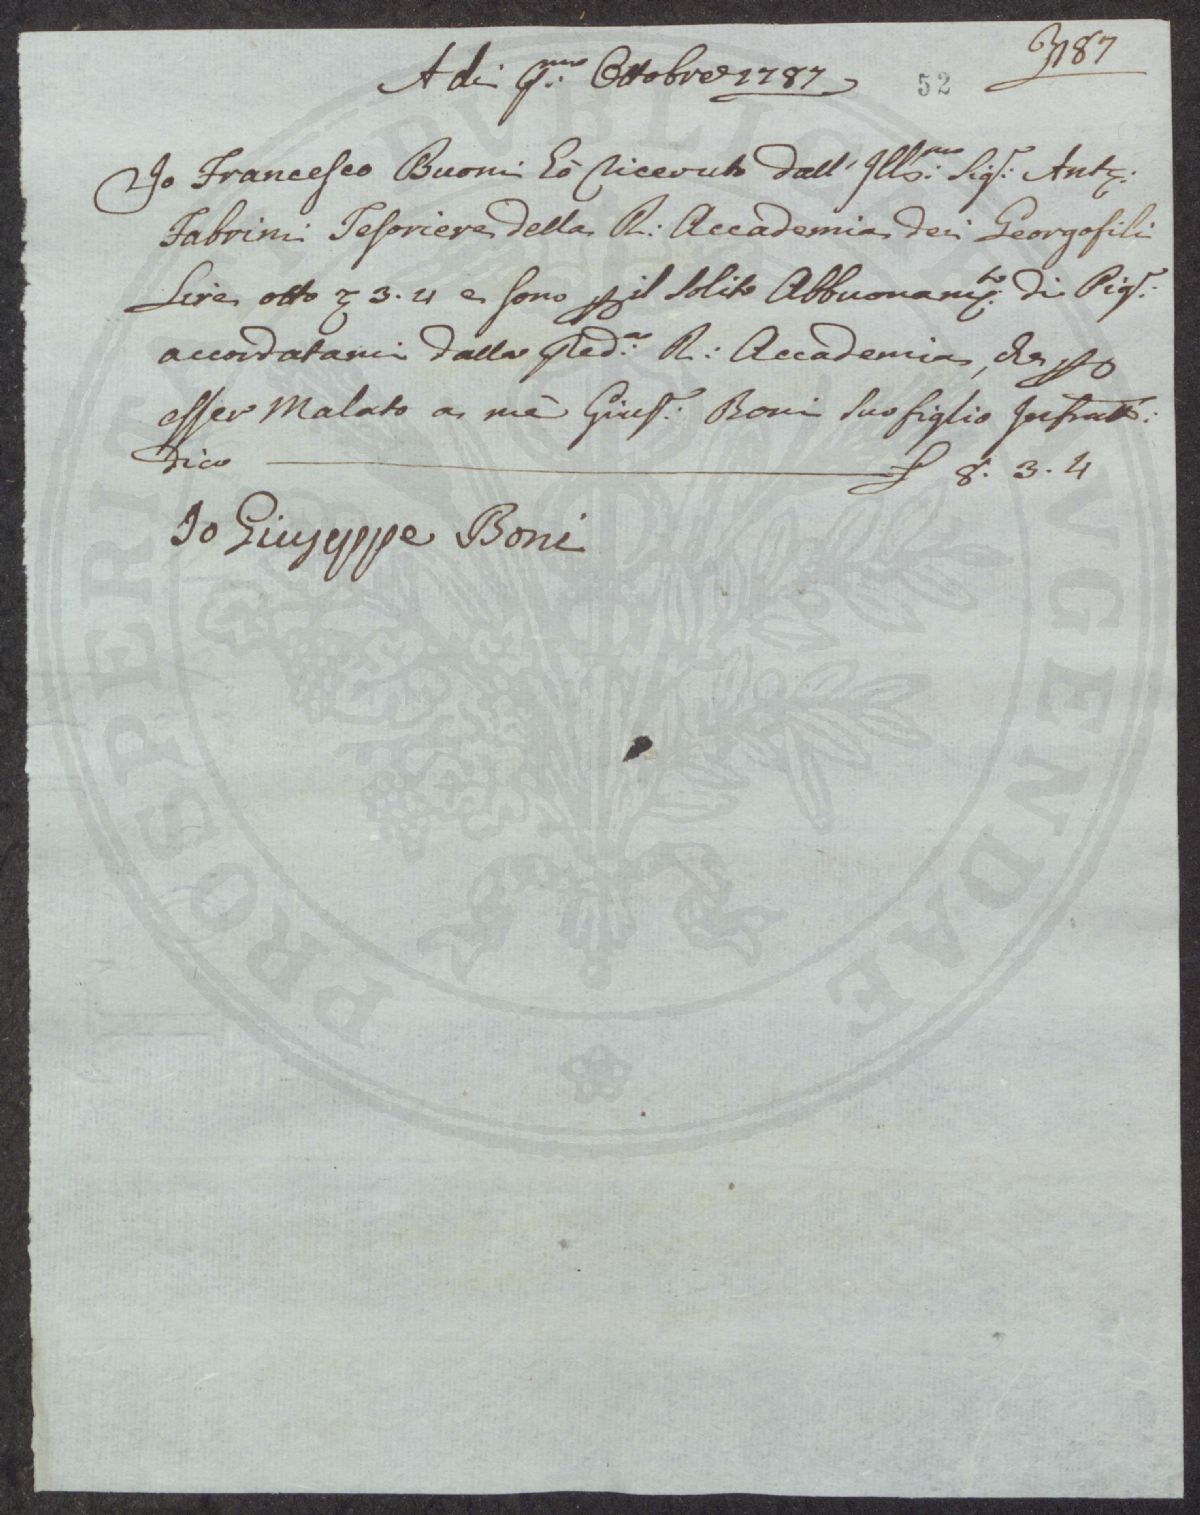 187
52
A di p.mo Ottobre 1787
Io Francesco Buoni hò ricevuto dall' Ill.mo Sig.r Ant.
Fabrini Tesoriere della R: Accademia dei Georgofili
Lire otto 3.4 e sono p il solito Abbuonam.to di Pig.
accordatami dalla Pred.a R: Accademia, che p
esser Malato a me Gius.e Boni suo figlio Infratt:
dico £ 8. 3. 4
Io Giuseppe Boni
PROSPERITATI PVBLICAE AVGENDAE